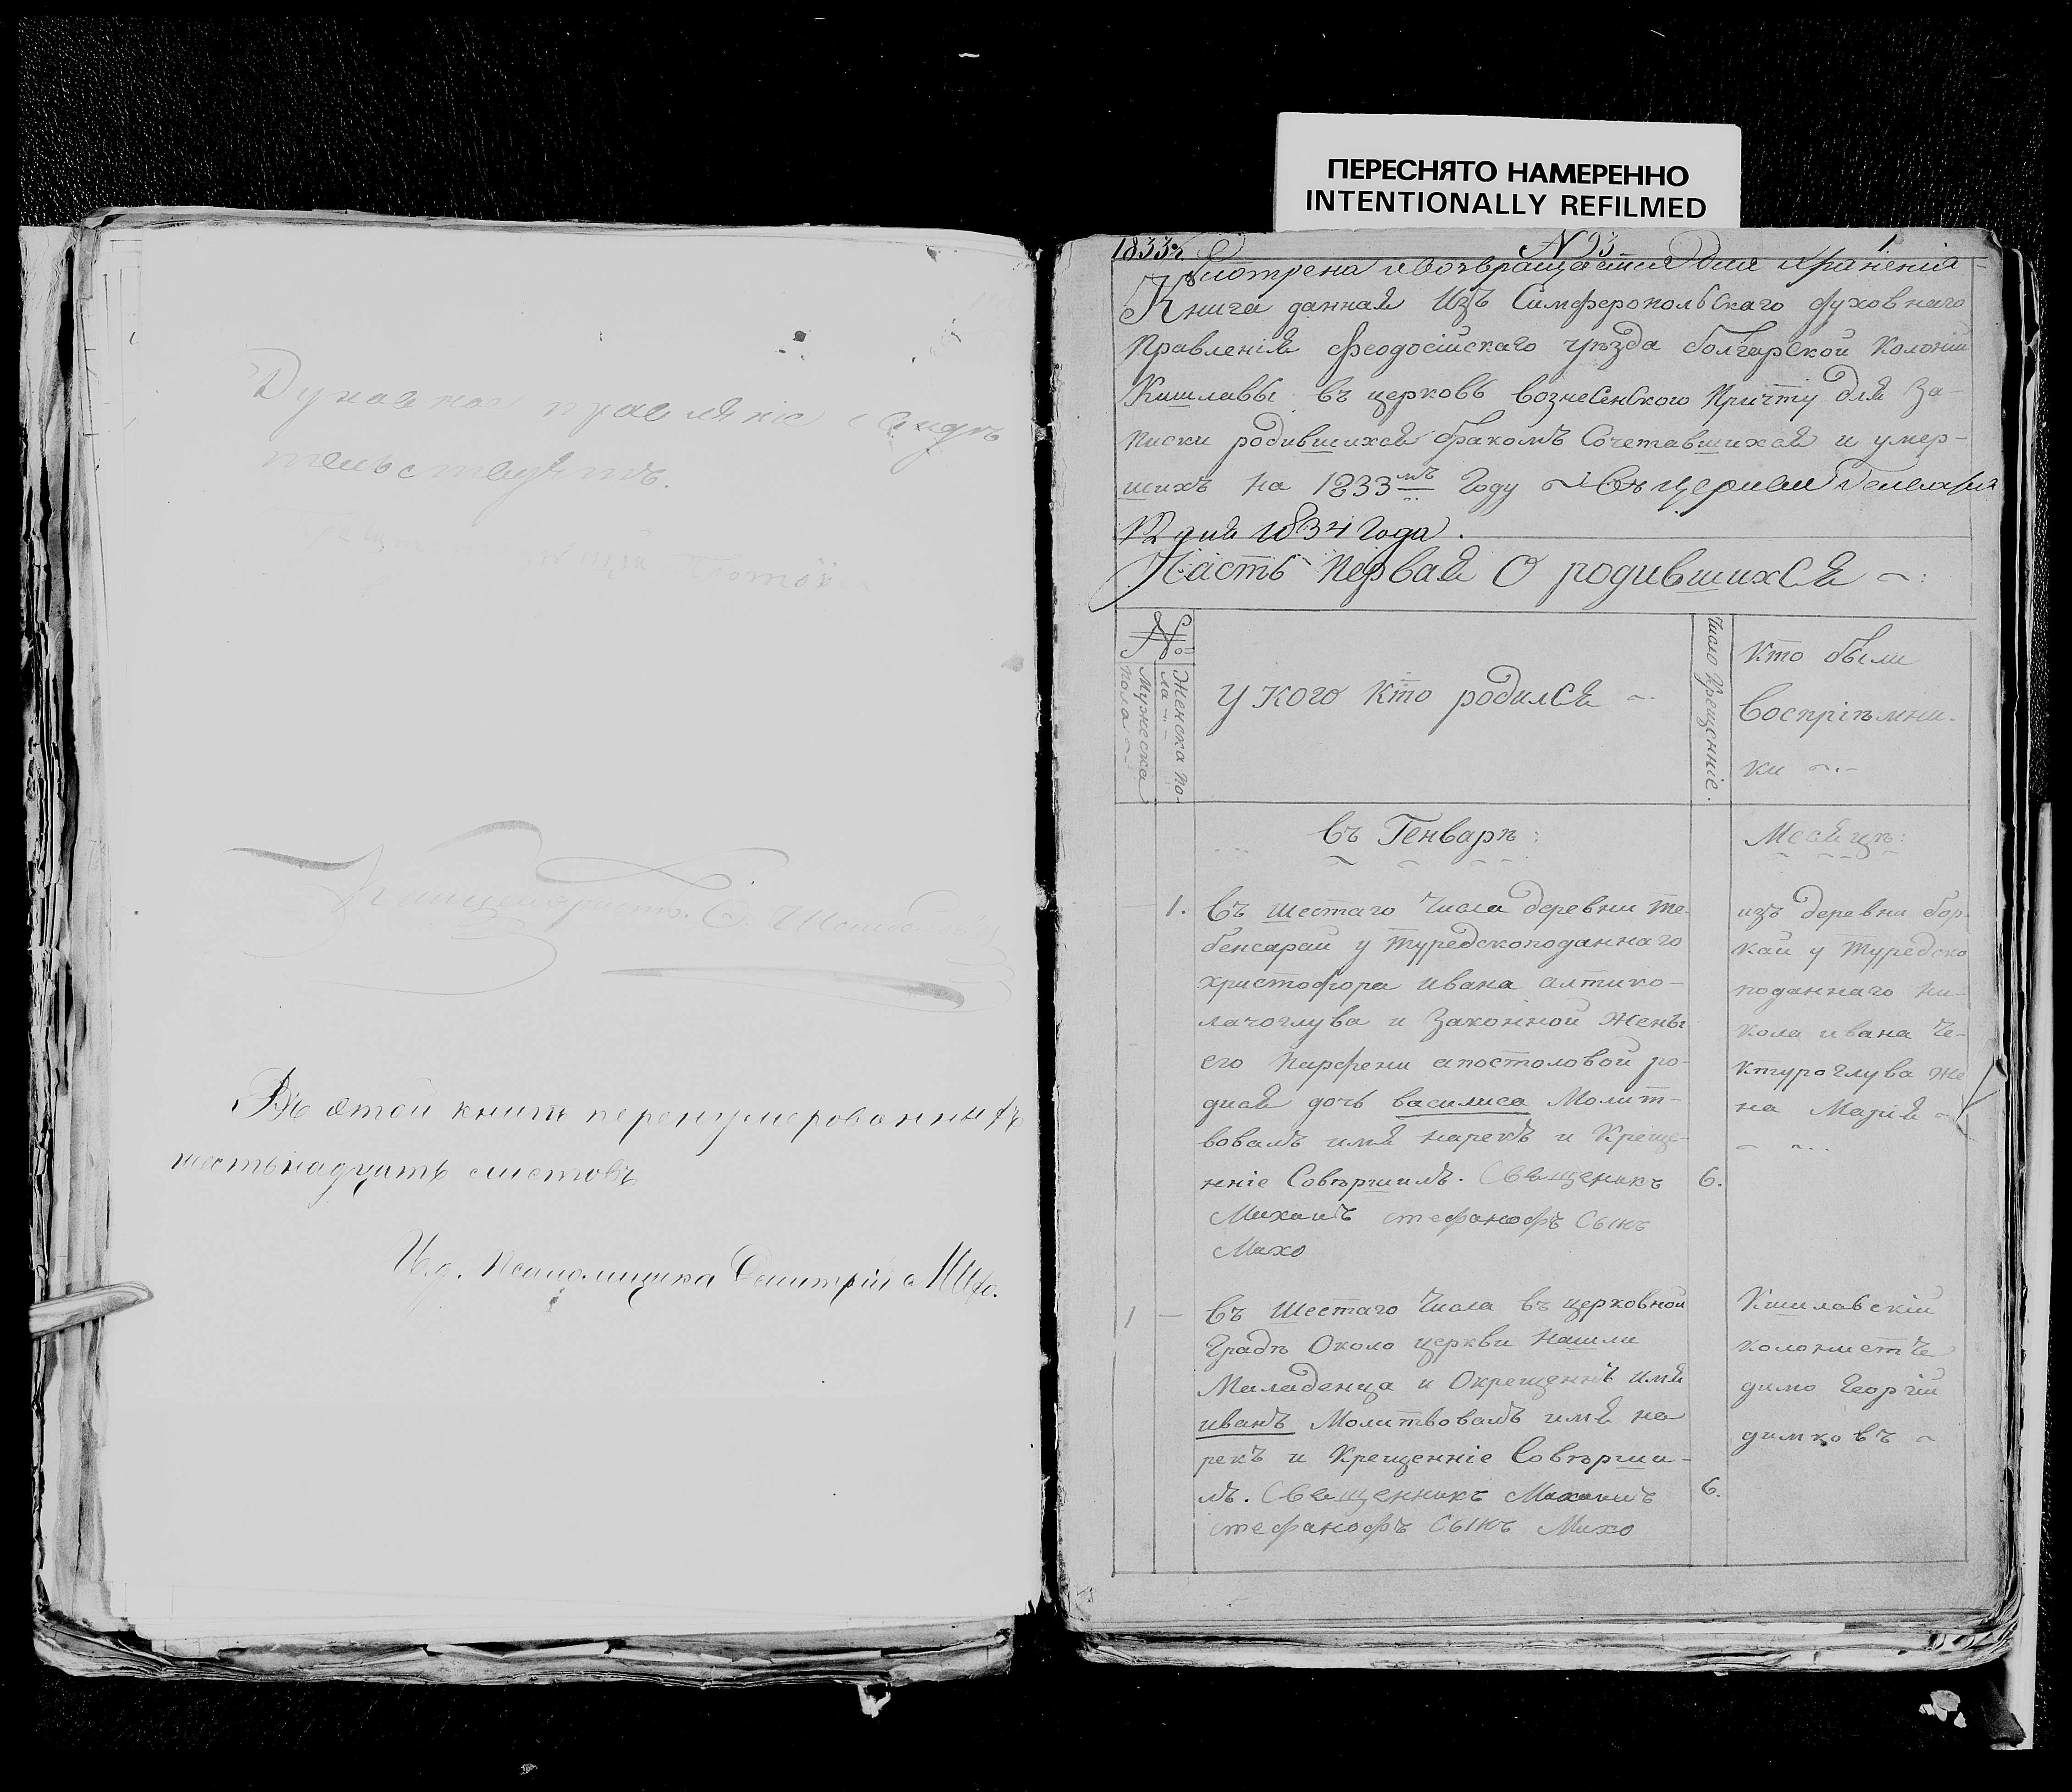 ПЕРЕСНЯТО НАМЕРЕННО
INTENTIONALLY REFILMED
Духовное правленіе свидѣ
тельствуетъ.
Въ этой книгѣ перенумерованныхъ
шестьнадцать листовъ
И.д. Псаломщика Димитрій
1833 г N 93 1
Смотрена и возвращается для храненія
Книга данная Изъ Симферопольскаго духовнаго
Правленія феодосійскаго уѣзда болгарской Колоніи
Кишлавы въ церковь вознесенского Причту для За-
писки родившихся бракомъ Сочетавшихся и умер-
шихъ на 1833мъ Году къ церкви
12 дня 1834 Года.
Часть Первая О родившихся
№
Мужеска пола
Женска пола
У кого Кто родился
Число Крещенніе.
Кто были
Воспріѣмни-
ки
въ Генварѣ:
Месяцѣ:
1. въ шестаго Числа деревни те-
бенсарай у турецкоподаннаго
христофора ивана алтико-
лачоглува и Законной Жены
его Парфени апостоловой ро-
диля дочь василиса Молит-
вовалъ имя нарекъ и Креще-
нніе Совѣршилъ. Священикъ
Михаилъ стефанофъ Сынъ
Михо
6.
изъ деревни бор-
кай у турецко
поданнаго ни-
кола ивана Че-
ктуроглува же
на Марія
1 — въ Шестаго Числа въ церковной
Градѣ Около церкви нашли
Маладенца и Окрещеннъ имя
иванъ Молитвовалъ имя на
рекъ и Крещенніе Совѣрши-
лъ. Священникъ Михаилъ
стефанофъ Сынъ Михо
6.
Кишлавскій
колонистъ
димо Георгій
димковъ